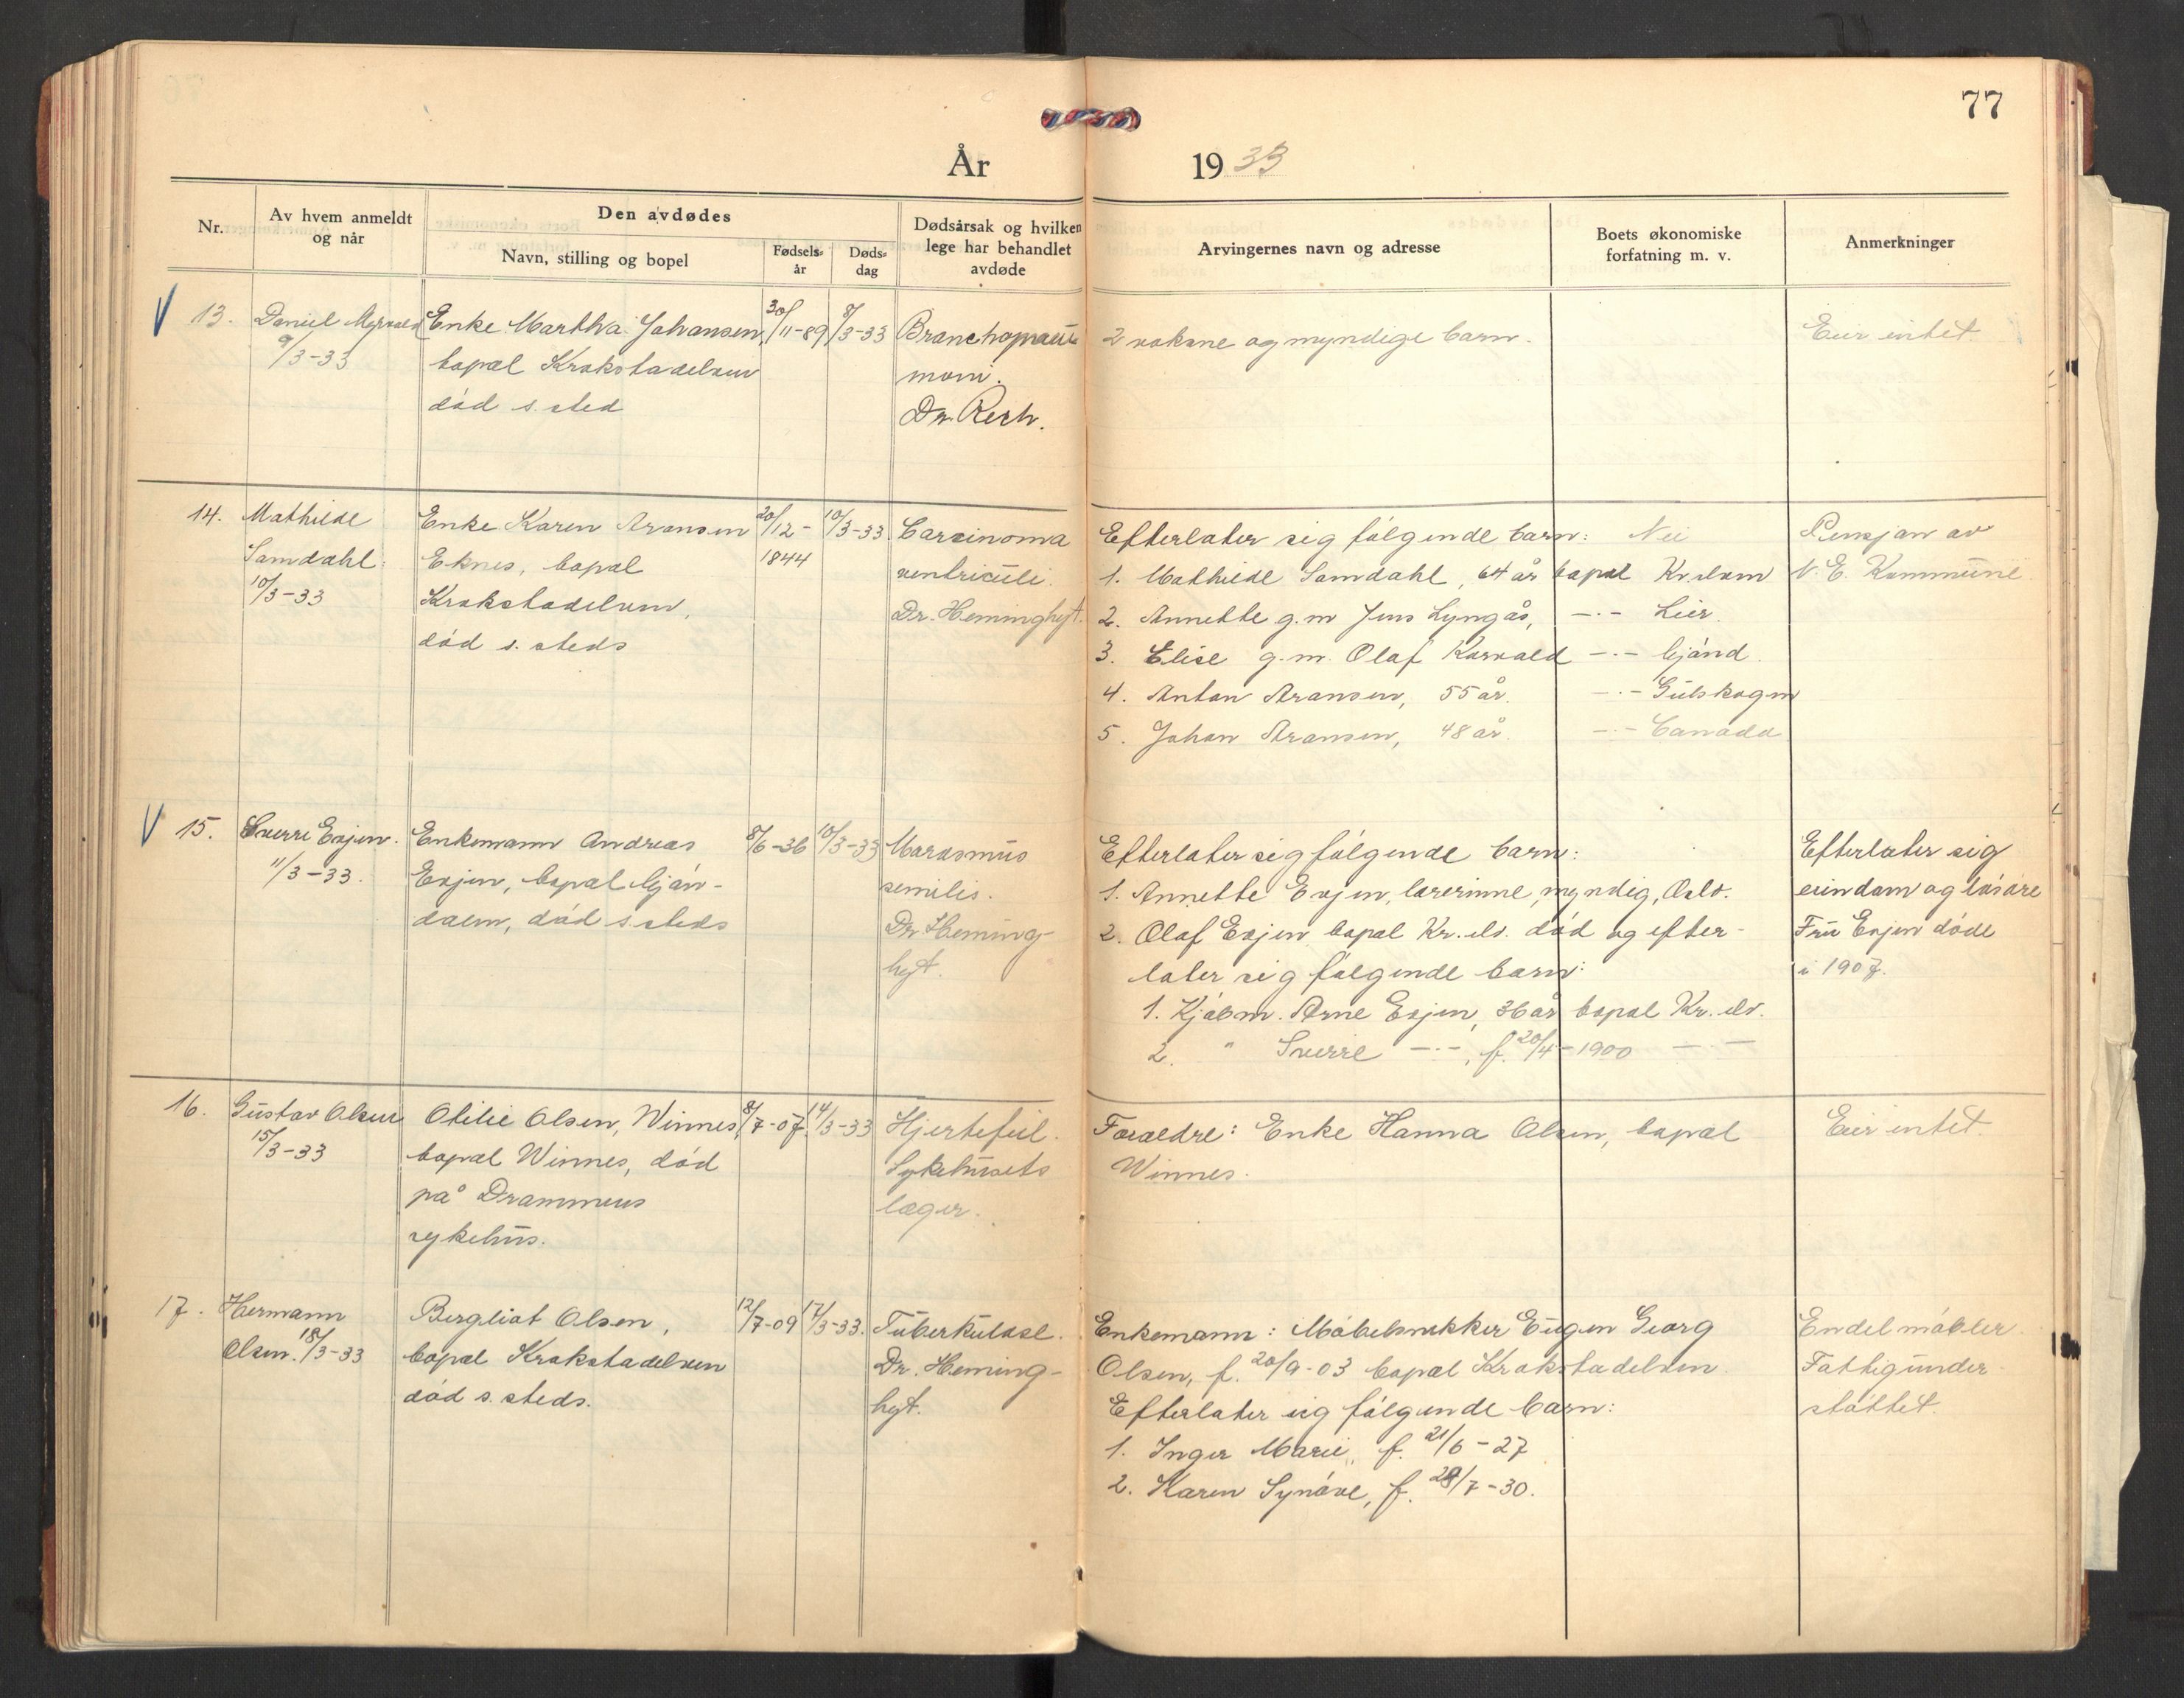 77
År 1933
Nr. Av hvem anmeldt og når
Den avdødes
Navn, stilling og bopel Fødsels-år Døds-dag
Dødsårsak og hvilken lege har behandlet avdøde
Arvingernes navn og adresse
Boets økonomiske forfatning m. v.
Anmerkninger
V 13. Daniel Myrvold Enke Martha Johansen, 30/11-89 8/3-33 2 voksne og myndige barn. Eier intet.
9/3-33 bopæl Krokstadelven moni.
død s. sted Dr. Rerh.
14. Mathilde Enke Karen Aronsen 20/12- 10/3-33 Carcinoma Efterlater sig følgende barn: Nei Pensjon av
Samdahl. Eknes, bopæl 1844 ventriculi. 1. Mathilde Samdahl, 64 år bopæl Kr.elven N. E. Kommune.
10/3-33 Krokstadelven, Dr. Heminghyt. 2. Annette g.m Jens Lyngås, -·- Lier.
død s. steds 3. Elise g.m. Olaf Korvald -·- Mjønd.
4. Anton Aronsen, 55 år. -·- Gulskogen
5. Johan Aronsen, 48 år. -·- Canada
V 15. Sverre Evjen. Enkemann Andreas 8/6-36 10/3-33 Marasmus Efterlater sig følgende barn: Efterlater sig
11/3-33. Evjen, bopæl Mjøn- senilis. 1. Annette Evjen, lærerinne, myndig, Oslo. eiendom og løsøre
dalen, død s. steds Dr. Heming- 2. Olaf Evjen bopæl Kr. elv. død og efter- Fru Evjen døde
hyt. later sig følgende barn: i 1907.
1. Kjøbm. Arne Evjen, 36 år bopæl Kr. elv.
2. " Sverre -·-, f. 20/4-1900 -·-
16. Gustav Olsen Otilie Olsen, Winnes, 8/7-07. 14/3-33 Hjertefeil. Foreldre: Enke Hanna Olsen, bopæl Eier intet.
15/3-33 bopæl Winnes, død Sykehusets Winnes.
på Drammens læger.
sykehus.
17. Hermann Bergliot Olsen, 12/7-09 17/3-33. Tuberkulose. Enkemann: Møbelsnekker Eugen Georg Endel møbler.
Olsen. 18/3-33 bopæl Krokstadelven Dr. Heming- Olsen, f. 20/9-03 bopæl Krokstadelven. Fattigunder-
død s. steds. hyt. Efterlater sig følgende barn: støttet.
1. Inger Marie, f. 21/6-27
2. Karen Synøve, f. 29/7-30.